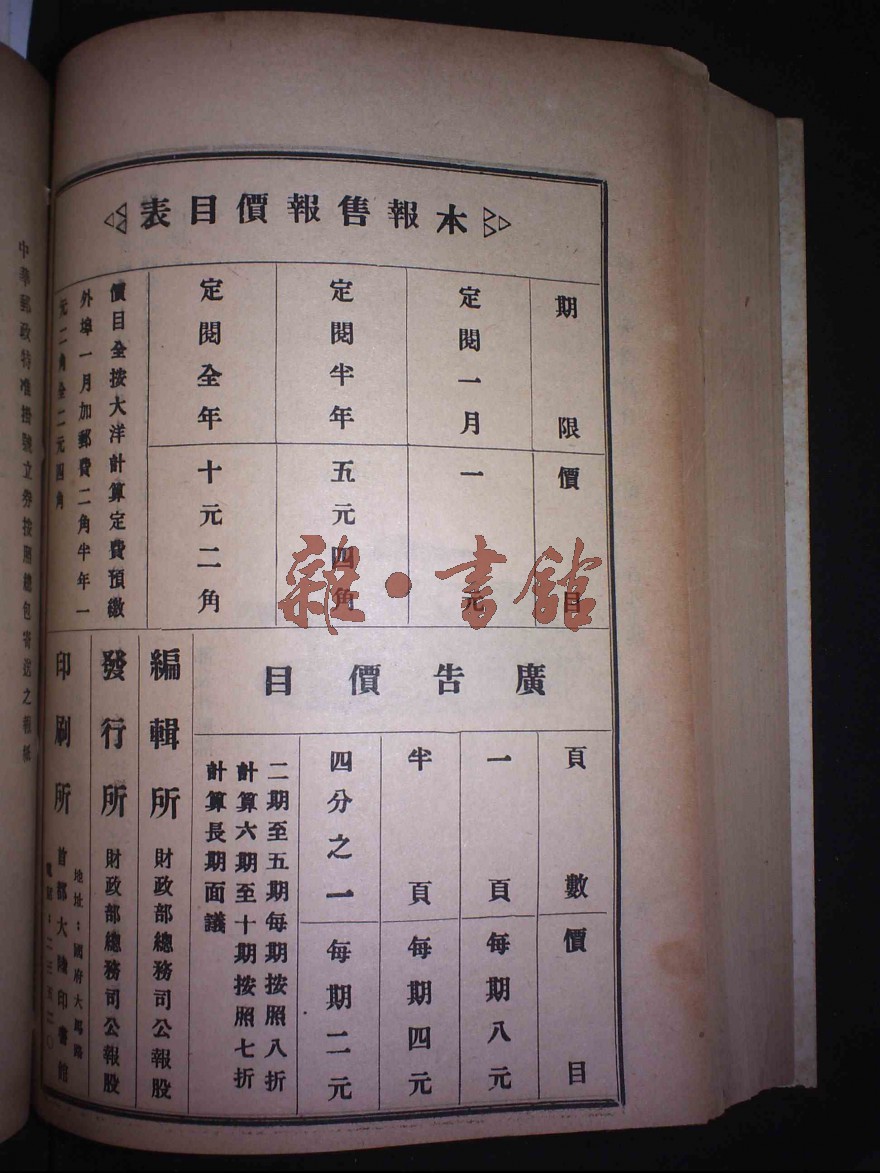 本報售報價目表
期限
價目
定閱一月
一元
定閱半年
五元四角
定閱全年
十元二角
價目全按大洋計算定費預繳
外埠一月加郵費二角半年一
元二角全二元四角
廣告價目
頁數
價目
一頁
每期八元
半頁
每期四元
四分之一
每期二元
二期至五期每期按照八折
計算六期至十期按照七折
計算長期面議
編輯所 財政部總務司公報股
發行所 財政部總務司公報股
印刷所 首都大陸印書館
地址:國府大馬路
中華郵政特准掛號立券按照總包寄送之報紙
雜·書館